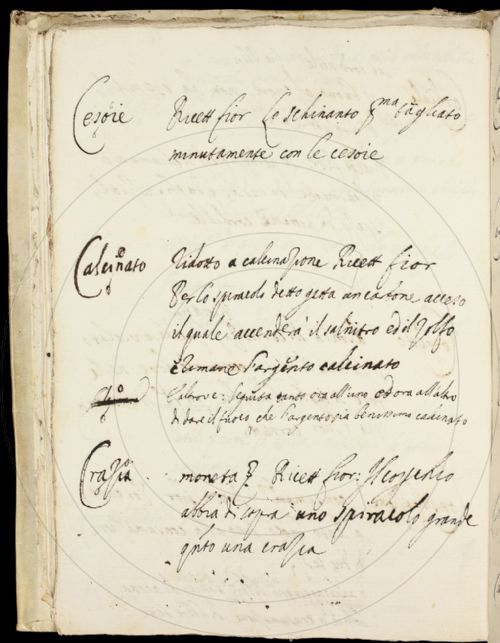 Cesoie Ricett fior Lo schinanto pma tagliato
minutamente con le cesoie
Calcinato ridotto a calcinazione Ricett fior
Per lo spiracolo detto getta un carbone acceso
il quale accenderà il salnitro ed il zolfo
e rimane l'argento calcinato
e altrove: seguita tanto ora all'uno ed ora all'altro
di dare il fuoco che l'argento sia benissimo calcinato
Crazia moneta Ricett fior: Il coperchio
abbia di sopra uno spiracolo grande
qnto una crazia